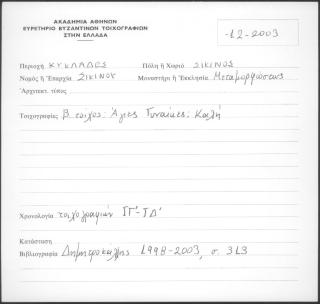 ΑΚΑΔΗΜΙΑ ΑΘΗΝΩΝ
ΕΥΡΕΤΗΡΙΟ ΒΥΖΑΝΤΙΝΩΝ ΤΟΙΧΟΓΡΑΦΙΩΝ
ΣΤΗΝ ΕΛΛΑΔΑ
-12-2003
Περιοχή ΚΥΚΛΑΔΕΣ Πόλη ἤ Χωριό ΣΙΚΙΝΟΣ
Νομός ἤ Ἐπαρχία ΣΙΚΙΝΟΥ Μοναστήρι ἤ Ἐκκλησία Μεταμορφώσεως
Ἀρχιτεκτ. τύπος
Τοιχογραφίες Β. τοίχος: Ἁγίες Γυναίκες: Καλή
Χρονολογία τοιχογραφιῶν ΙΓ'-ΙΔ'
Κατάσταση
Βιβλιογραφία Δημητροκάλλης 1998-2003, σ. 313